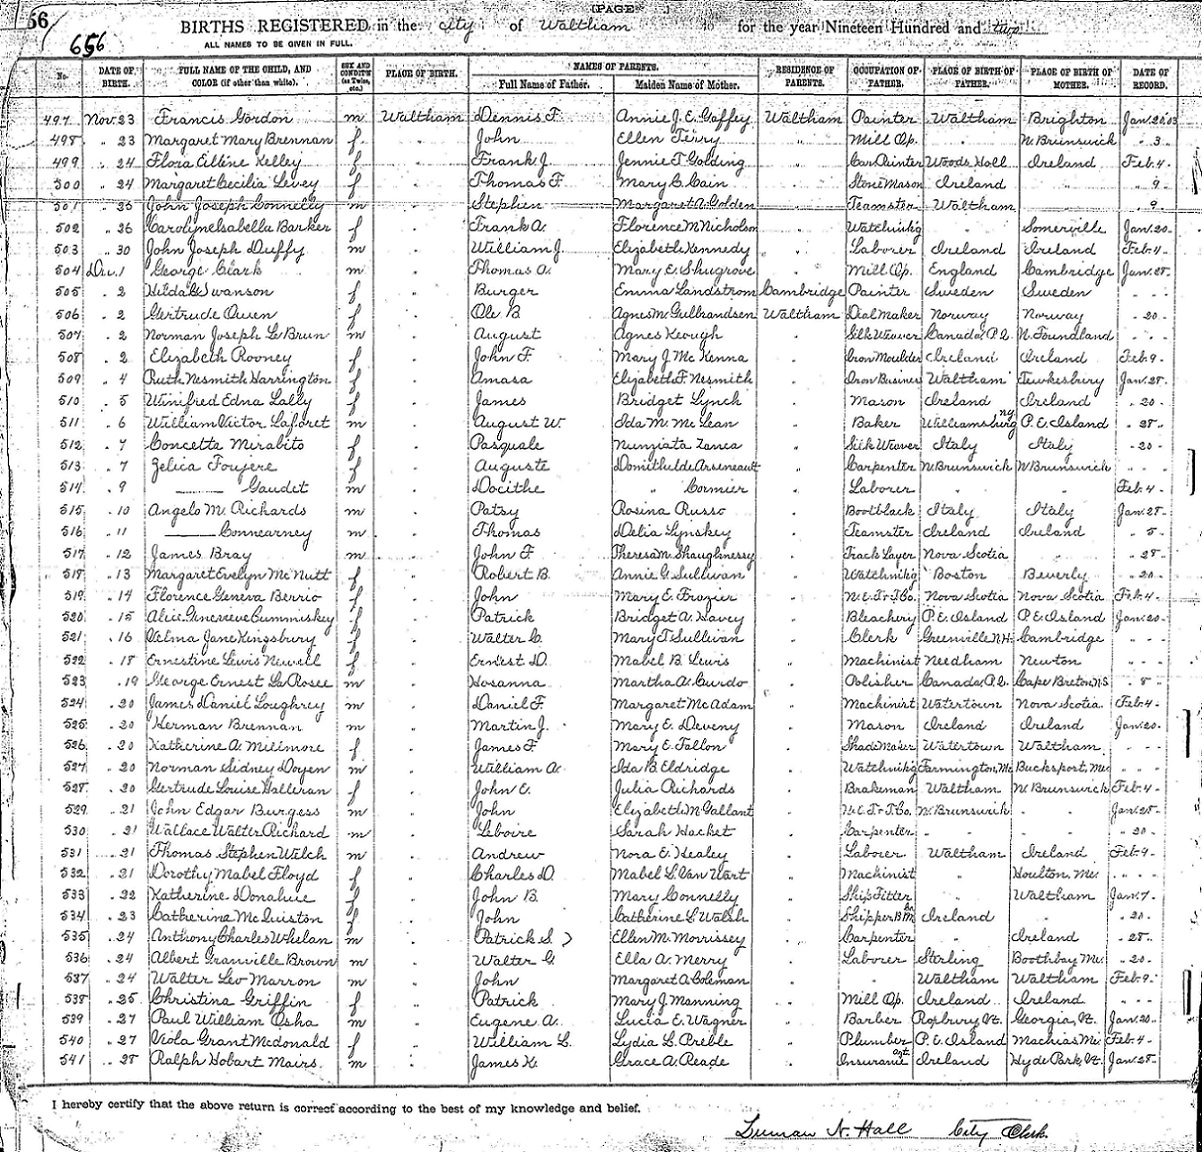 56
656
(PAGE
BIRTHS REGISTERED in the City of Waltham for the year Nineteen Hundred and two
ALL NAMES TO BE GIVEN IN FULL.
No. DATE OF BIRTH. FULL NAME OF THE CHILD, AND COLOR (if other than white). SEX AND CONDIT'N (as Twins, etc.) PLACE OF BIRTH. NAMES OF PARENTS. Full Name of Father. Maiden Name of Mother. RESIDENCE OF PARENTS. OCCUPATION OF FATHER. PLACE OF BIRTH OF FATHER. PLACE OF BIRTH OF MOTHER. DATE OF RECORD.
497 Nov 23 Francis Gordon m Waltham Dennis F. Annie J. E. Gaffey Waltham Painter Waltham Brighton Jan. 20 '03
498 " 23 Margaret Mary Brennan f John Ellen Terry Mill Op. N. Brunswick " 3
499 " 24 Flora Ellene Kelley f Frank J. Jennie T. Golding Car Painter Woods Holl Ireland Feb. 4
500 " 24 Margaret Cecilia Levey f Thomas F. Mary C. Cain Stone Mason Ireland " 9
501 " 25 John Joseph Connelly m Stephen Margaret A. Golden Teamster Waltham 9
502 " 26 Carolyn Isabella Barker f Frank A. Florence M Nicholson Watchmkg " Somerville Jan. 20
503 " 30 John Joseph Duffy m William J. Elizabeth Kennedy Laborer Ireland Ireland Feb. 4
504 Dec. 1 George Clark m Thomas A. Mary E. Shugrove Mill Op. England Cambridge Jan. 28
505 " 2 Hilda G. Swanson f Burger Emma Landstrom Cambridge Painter Sweden Sweden
506 " 2 Gertrude Owen f Ole B Agnes M. Gulbrandsen Waltham Dial Maker Norway Norway " 20
507 " 2 Norman Joseph Le Brun m August Agnes Keough Silk Weaver Canada, P. Q. N. Foundland
508 " 2 Elizabeth Rooney f John F Mary J. McKenna Iron Moulder Ireland Ireland Feb 9
509 " 4 Ruth Nesmith Harrington f Amasa Elizabeth F. Nesmith Iron Business Waltham Tewkesbury Jan. 28
510 " 5 Winifred Edna Lally f James Bridget Lynch Mason Ireland Ireland " 20
511 " 6 William Victor Laforet m August W. Ida M. McLean Baker Williamsburg N.Y. P. E. Island " 28
512 " 7 Concetta Mirabito f Pasquale Nunziata Zanca Silk Weaver Italy Italy " 20
513 " 7 Zelica Foujere f Auguste Domithilde Arseneault Carpenter N. Brunswick N. Brunswick
514 " 9 —— Gaudet m Docithe " Cormier Laborer " " Feb. 4
515 " 10 Angelo M. Richards m Patsy Rosina Russo Bootblack Italy Italy Jan. 28
516 " 11 —— Connearney m Thomas Delia Lynskey Teamster Ireland Ireland " 5
517 " 12 James Bray m John F Theresa M. Shaughnessy Track Layer Nova Scotia " " 28
518 " 13 Margaret Evelyn McNutt f Robert B. Annie G. Sullivan Watchmkg Boston Beverly " 20
519 " 14 Florence Geneva Berrio f John Mary E. Frazier N. E. T. & T. Co. Nova Scotia Nova Scotia Feb. 4
520 " 15 Alice Genevieve Cummiskey f Patrick Bridget A. Havey Bleachery P. E. Island P. E. Island Jan. 20
521 " 16 Velma Jane Kingsbury f Walter C. Mary T. Sullivan Clerk Greenville N.H. Cambridge
522 " 18 Ernestine Lewis Newell f Ernest D. Mabel B. Lewis Machinist Needham Newton
523 " 19 George Ernest La Rosee m Hosanna Martha A. Curdo Polisher Canada, P. Q. Cape Breton, N.S. " 8
524 " 20 James Daniel Loughrey m Daniel F. Margaret McAdam Machinist Watertown Nova Scotia Feb. 4
525 " 20 Herman Brennan m Martin J. Mary E. Deveny Mason Ireland Ireland Jan. 20
526 " 20 Katherine A. Millmore f James F Mary E. Fallon Shade Maker Watertown Waltham
527 " 20 Norman Sidney Doyen m William A. Ida B. Eldridge Watchmkg Farmington, Me Bucksport, Me.
528 " 20 Gertrude Louise Halleran f John E. Julia Richards Brakeman Waltham N. Brunswick Feb. 4
529 " 21 John Edgar Burgess m John Elizabeth M. Gallant N. E. T. & T. Co. N. Brunswick " Jan. 28
530 " 21 Wallace Walter Richard m Leboire Sarah Hacket Carpenter " " " 20
531 " 21 Thomas Stephen Welch m Andrew Nora E. Healey Laborer Waltham Ireland Feb. 9
532 " 21 Dorothy Mabel Floyd f Charles D. Mabel L. Van Wart Machinist " Houlton, Me.
533 " 22 Katherine Donahue f John B. Mary Connelly Ship Fitter " Waltham Jan. 7
534 " 23 Catherine McQuiston f John Catherine G. Walsh Shipper Ireland " " 20
535 " 24 Anthony Charles Whelan m Patrick S. Ellen M. Morrissey Carpenter " Ireland " 28
536 " 24 Albert Granville Brown m Walter G. Ella A. Merry Laborer Sterling Boothbay Me. " 20
537 " 24 Walter Leo Marron m John Margaret A. Coleman " Waltham Waltham Feb. 9
538 " 25 Christina Griffin f Patrick Mary J. Manning Mill Op. Ireland Ireland
539 " 27 Paul William Osha m Eugene A. Lucia E. Wagner Barber Roxbury Vt. Georgia, Vt. Jan. 20
540 " 27 Viola Grant Mcdonald f William L. Lydia L. Preble Plumber P. E. Island Machias Me. Feb. 4
541 " 28 Ralph Hobart Mairs m James K. Grace A. Reade Insurance agt. Ireland Hyde Park, Vt. Jan. 28
I hereby certify that the above return is correct according to the best of my knowledge and belief.
Luman N. Hall City Clerk.